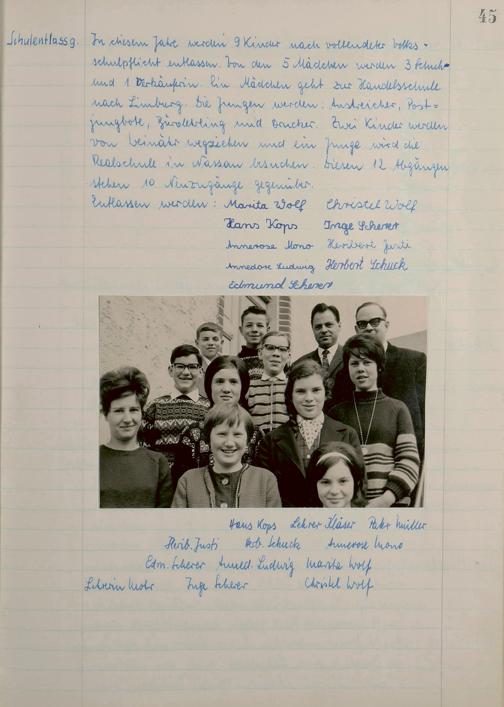 45
Schulentlassg.
In diesem Jahr werden 9 Kinder nach vollendeter Volks-
schulpflicht entlassen. Von den 5 Mädchen werden 3 Schuh-
und 1 Verkäuferin. Ein Mädchen geht zur Handelsschule
nach Limburg. Die Jungen werden: Anstreicher, Post=
jungbote, Bürolehrling und Drucker. Zwei Kinder werden
von Weinähr wegziehen und ein Junge wird die
Realschule in Nassau besuchen. Diesen 12 Abgängen
stehen 10 Neuzugänge gegenüber.
Entlassen werden: Marita Wolf Christel Wolf
Hans Kops Inge Scherer
Annerose Mono Heribert Justi
Annedore Ludwig Herbert Schuck
Edmund Scherer
Hans Kops Lehrer Kläser Pater Müller
Herib. Justi Herb. Schuck Annerose Mono
Edm. Scherer Anned. Ludwig Marita Wolf
Lehrerin Mohr Inge Scherer Christel Wolf